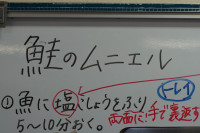 鮭のムニエル
トレイ
①魚に塩こしょうをふり
両面に!手で裏返す
5〜10分おく。